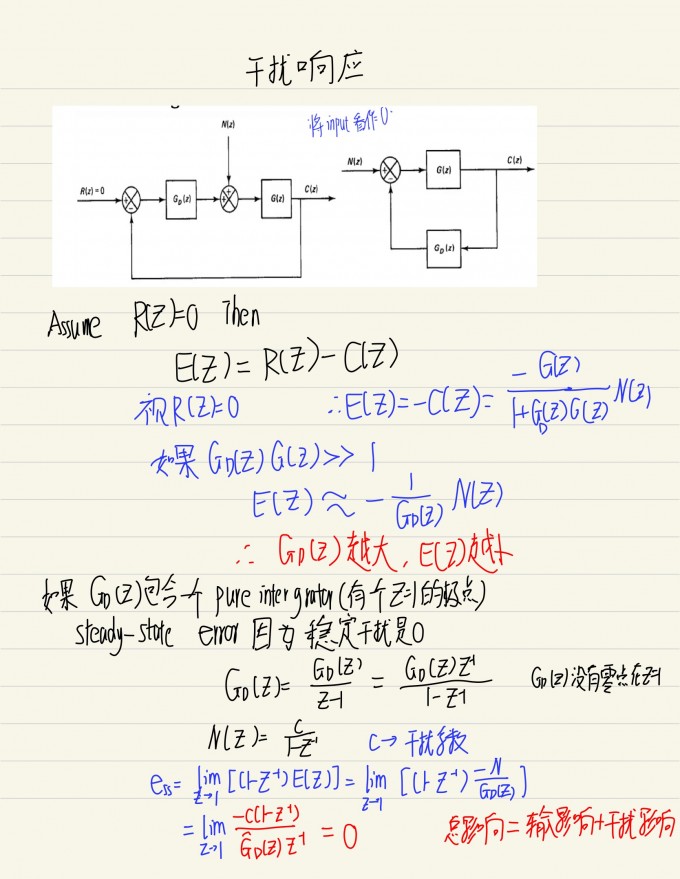 干扰响应
将 input 看作 0.
N(z)
R(z) = 0
G_D(z)
G(z)
C(z)
N(z)
G(z)
C(z)
G_D(z)
Assume R(Z)=0 Then
E(Z) = R(Z) - C(Z)
视R(Z)=0 ∴E(Z)=-C(Z)= \frac{-G(Z)}{1+G_D(Z)G(Z)} N(Z)
如果 G_D(Z)G(Z)>>1
E(Z) ≈ -\frac{1}{G_D(Z)} N(Z)
∴ G_D(Z)越大, E(Z)越小
如果 G_D(Z)包含一个 pure intergrator(有个Z=1的极点)
steady-state error 因为稳定干扰是0
G_D(Z)= \frac{Ĝ_D(Z)}{Z-1} = \frac{Ĝ_D(Z)Z^{-1}}{1-Z^{-1}} Ĝ_D(Z)没有零点在Z=1
N(Z)= \frac{C}{1-Z^{-1}} C→干扰系数
e_{ss}= \lim_{Z→1} [(1-Z^{-1})E(Z)]= \lim_{Z→1} [(1-Z^{-1}) \frac{-N}{G_D(Z)}]
= \lim_{Z→1} \frac{-C(1-Z^{-1})}{Ĝ_D(Z)Z^{-1}} = 0 总影响=输入影响+干扰影响